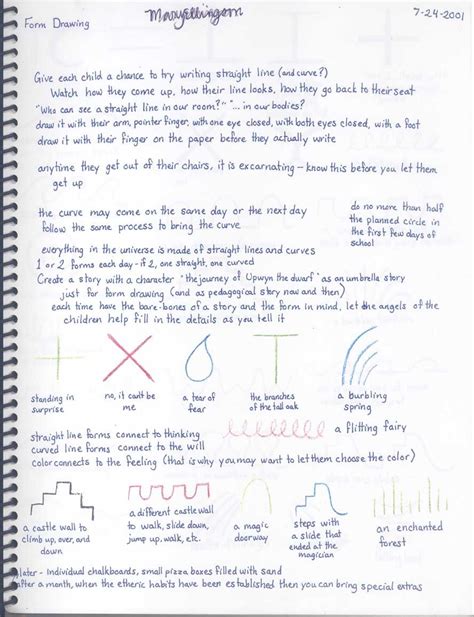 Form Drawing
7-24-2001
Give each child a chance to try writing straight line (and curve?)
Watch how they come up, how their line looks, how they go back to their seat
"Who can see a straight line in our room?" "... in our bodies?
draw it with their arm, pointer finger, with one eye closed, with both eyes closed, with a foot
draw it with their finger on the paper before they actually write
anytime they get out of their chairs, it is excarnating - know this before you let them
get up
the curve may come on the same day or the next day
follow the same process to bring the curve
do no more than half
the planned circle in
the first few days of
school
everything in the universe is made of straight lines and curves
1 or 2 forms each day - if 2, one straight, one curved
Create a story with a character "the journey of Upwyn the dwarf" as an umbrella story
just for form drawing (and as pedagogical story now and then)
each time have the bare-bones of a story and the form in mind, let the angels of the
children help fill in the details as you tell it
standing in
surprise
no, it can't be
me
a tear of
fear
the branches
of the tall oak
a burbling
spring
straight line forms connect to thinking
curved line forms connect to the will
color connects to the feeling (that is why you may want to let them choose the color)
a flitting fairy
a castle wall to
climb up, over, and
down
a different castle wall
to walk, slide down,
jump up, walk, etc.
a magic
doorway
steps with
a slide that
ended at the
magician
an enchanted
forest
later - Individual chalkboards, small pizza boxes filled with sand
after a month, when the etheric habits have been established then you can bring special extras